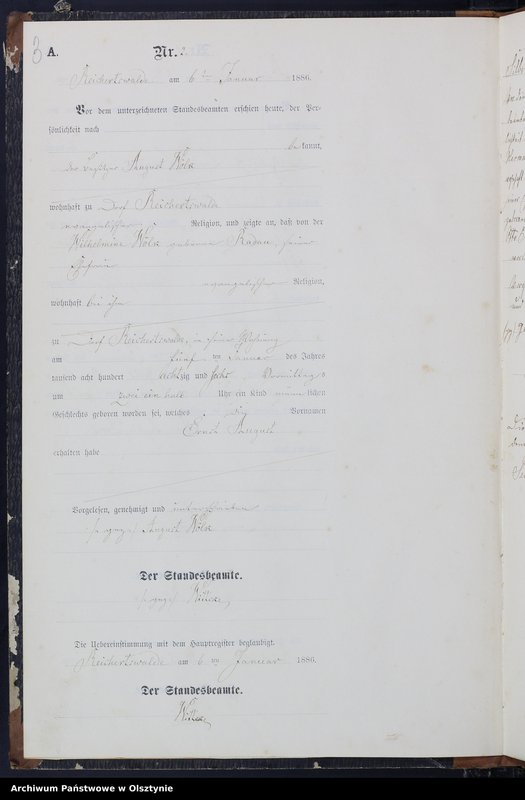 3
A. Nr. 3.
Reichertswalde am 6ten Januar 1886.
Vor dem unterzeichneten Standesbeamten erschien heute, der Per-
sönlichkeit nach
bekannt,
der August Wölk
wohnhaft zu Dorf Reichertswalde
evangelischer Religion, und zeigte an, daß von der
Wilhelmine Wölk geborene Radau, seiner
Ehefrau
evangelischer Religion,
wohnhaft bei ihm
zu Dorf Reichertswalde, in seiner Wohnung
am fünften Januar des Jahres
tausend acht hundert achtzig und sechs Vormittags
um zwei ein halb Uhr ein Kind männlichen
Geschlechts geboren worden sei, welches die Vornamen
Ernst August
erhalten habe
Vorgelesen, genehmigt und unterschrieben
gez. August Wölk
Der Standesbeamte.
Die Uebereinstimmung mit dem Hauptregister beglaubigt.
Reichertswalde am 6ten Januar 1886.
Der Standesbeamte.
Archiwum Państwowe w Olsztynie